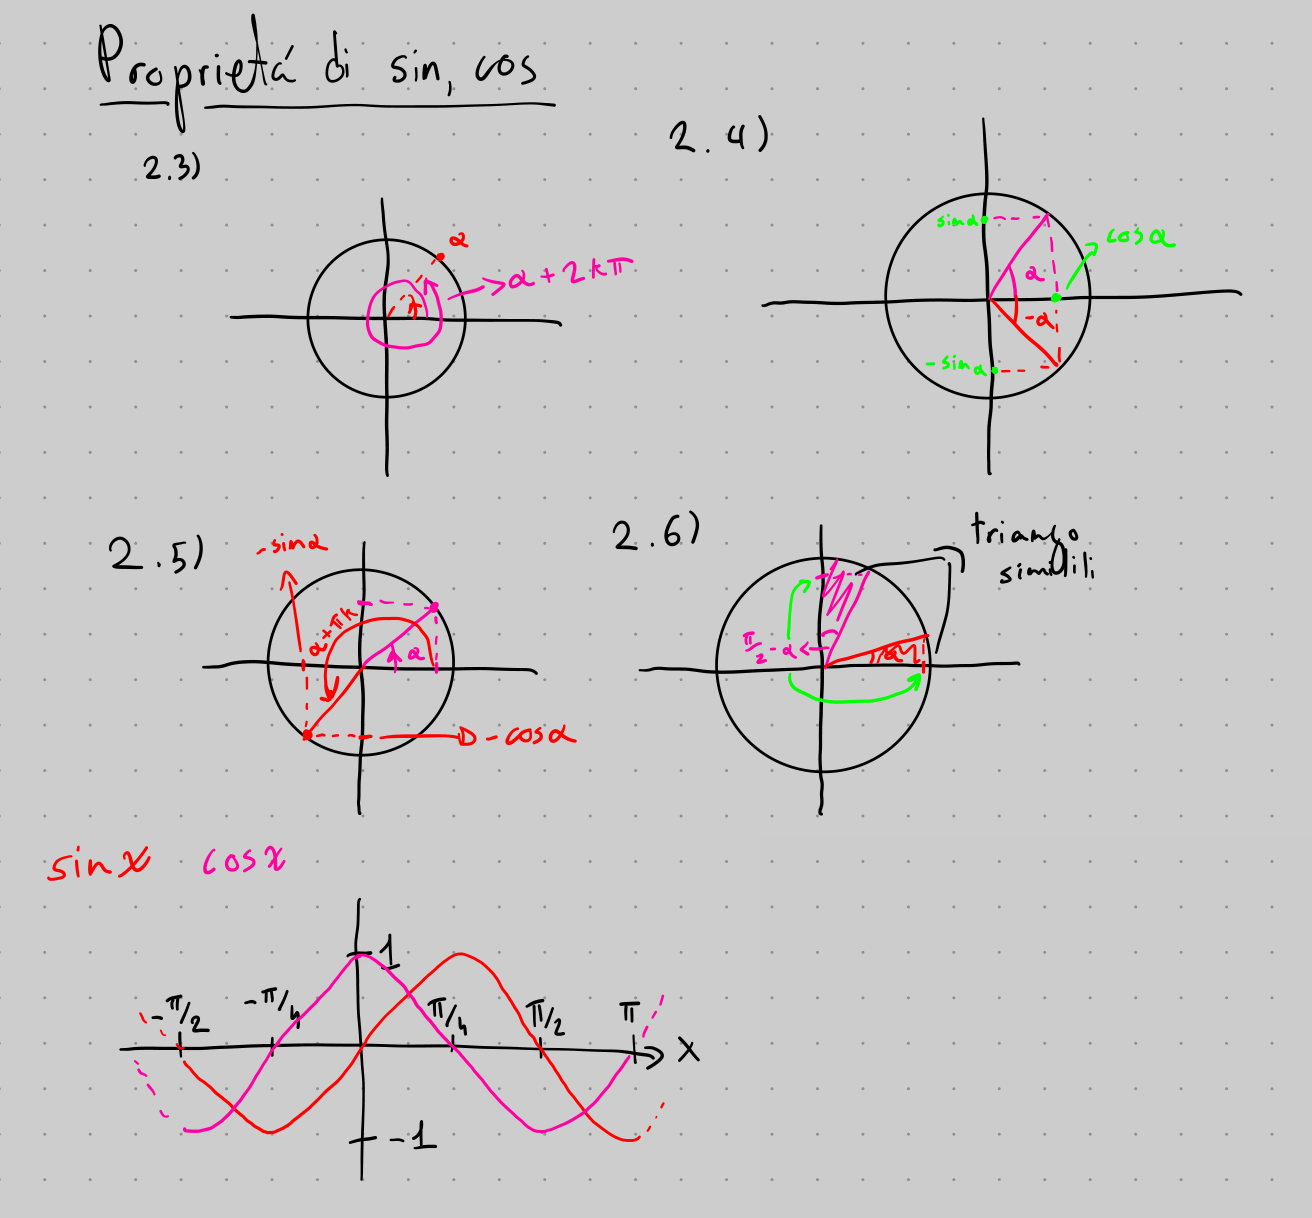 Proprietá di sin, cos
2.3)
α
α + 2kπ
2.4)
sinα
cosα
α
-α
-sinα
2.5)
-sinα
α+πk
α
-cosα
2.6)
triango
simili
π/2 - α
α
sinx cosx
1
-π/2 -π/4 π/4 π/2 π
x
-1